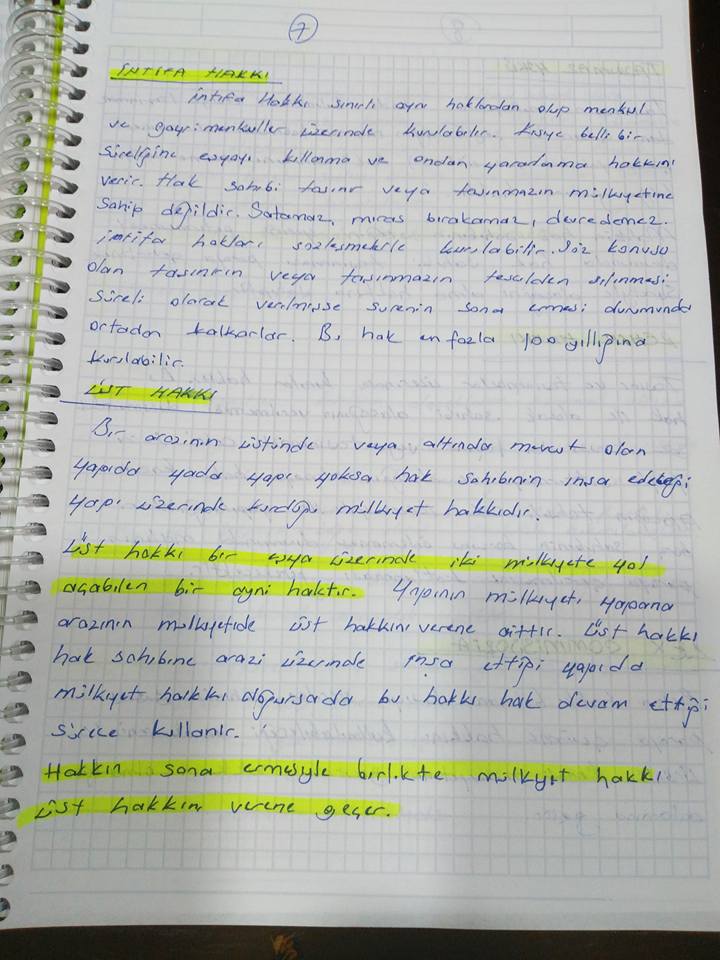 7
İNTİFA HAKKI
İntifa Hakkı sınırlı ayni haklardan olup menkul
ve gayrimenkuller üzerinde kurulabilir. Kişiye belli bir
süreliğine eşyayı kullanma ve ondan yararlanma hakkını
verir. Hak sahibi taşınır veya taşınmazın mülkiyetine
Sahip değildir. Satamaz, miras bırakamaz, devredemez.
İntifa hakları sözleşmeyle kurulabilir. Söz konusu
olan taşınırın veya taşınmazın tescilden silinmesi
süreli olarak verilmişse surenin sona ermesi durumunda
ortadan kalkarlar. Bu hak en fazla 100 yıllığına
kurulabilir.
ÜST HAKKI
Bir arazinin üstünde veya altında mevcut olan
yapıda yada yapı yoksa hak sahibinin inşa edeceği
yapı üzerinde kurduğu mülkiyet hakkıdır.
Üst hakkı bir eşya üzerinde iki mülkiyete yol
açabilen bir ayni haktır. Yapının mülkiyeti yapana
arazinin mülkiyetide üst hakkını verene aittir. Üst hakkı
hak sahibine arazi üzerinde inşa ettiği yapıda
mülkiyet hakkı doğursada bu hakkı hak devam ettiği
sürece kullanır.
Hakkın sona ermesiyle birlikte mülkiyet hakkı
üst hakkını verene geçer.